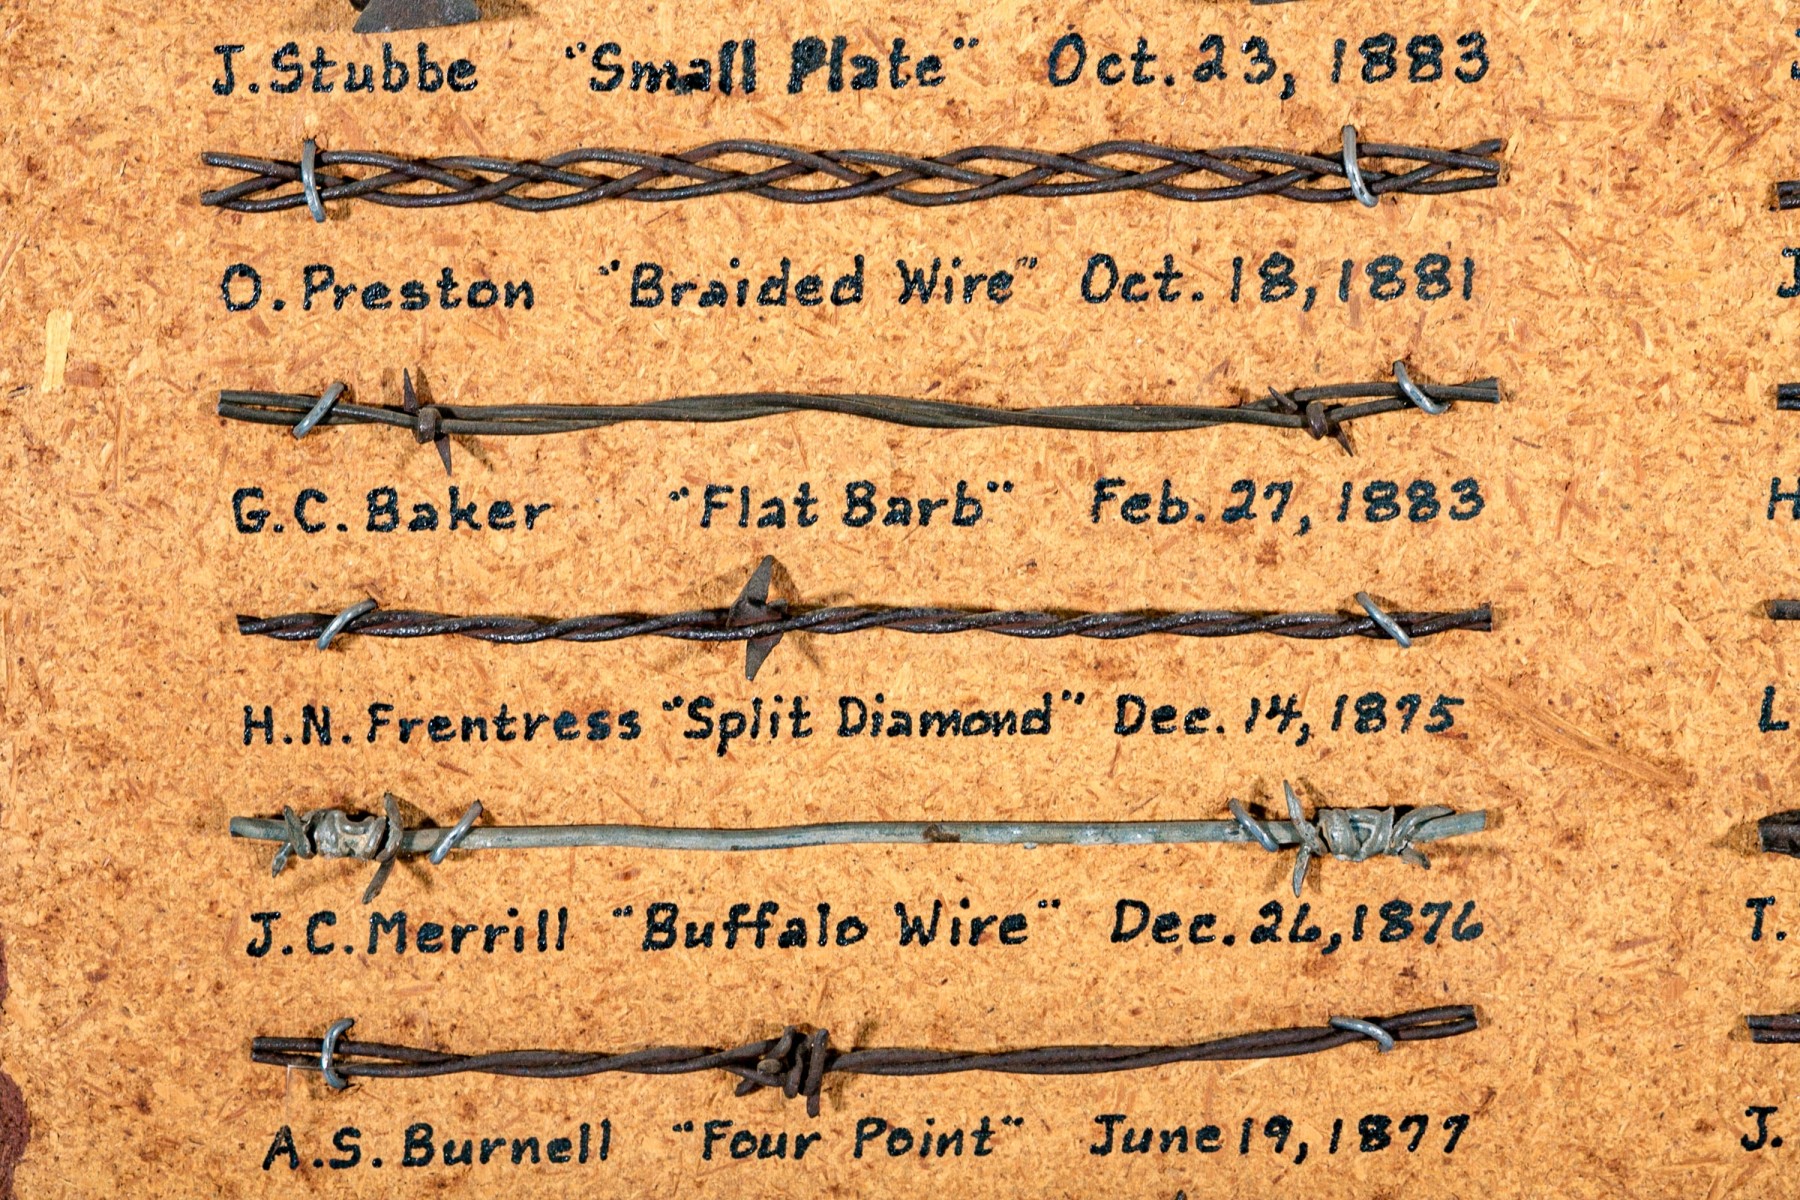 J.Stubbe "Small Plate" Oct. 23, 1883
O. Preston "Braided Wire" Oct. 18, 1881
G.C. Baker "Flat Barb" Feb. 27, 1883
H.N. Frentress "Split Diamond" Dec. 14, 1875
J.C. Merrill "Buffalo Wire" Dec. 26, 1876
A.S. Burnell "Four Point" June 19, 1877
H
L
T.
J.